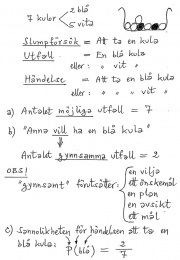 7 kulor < 2 blå
5 vita
Slumpförsök = Att ta en kula
Utfall = En blå kula
eller: " vit "
Händelse = Att ta en blå kula
eller: " " " vit "
a) Antalet möjliga utfall = 7
b) "Anna vill ha en blå kula"
Antalet gynnsamma utfall = 2
OBS!
"gynnsamt" förutsätter:
en vilja
ett önskemål
en plan
en avsikt
ett mål
c) Sannolikheten för händelsen att ta en
blå kula: P(blå) = 2/7